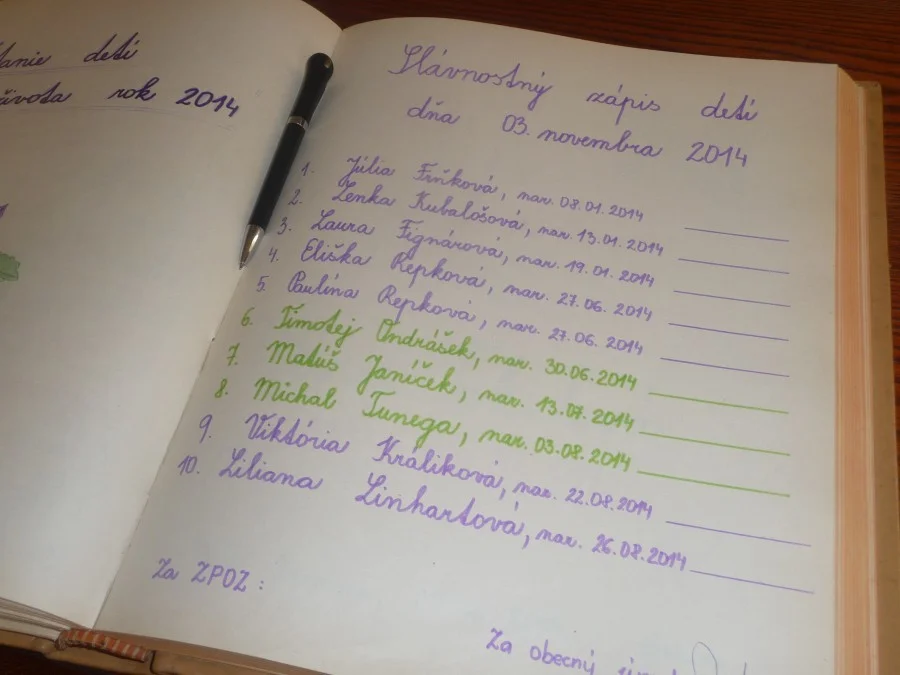 deti
života rok 2014
Slávnostný zápis detí
dňa 03. novembra 2014
1. Júlia Fříková, nar. 08.01.2014
2. Lenka Kubalošová, nar. 13.01.2014
3. Laura Fignárová, nar. 19.01.2014
4. Eliška Repková, nar. 27.06.2014
5. Paulína Repková, nar. 27.06.2014
6. Timotej Ondrášek, nar. 30.06.2014
7. Matúš Janíček, nar. 13.07.2014
8. Michal Tunega, nar. 03.08.2014
9. Viktória Králiková, nar. 22.08.2014
10. Liliana Linhartová, nar. 26.08.2014
Za ZPOZ:
Za obecný